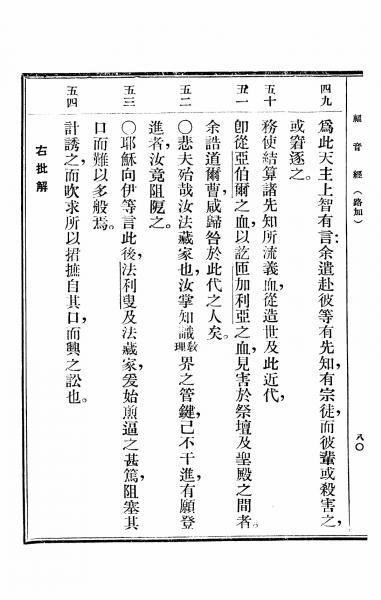 福音經（路加）
八〇
四九 爲此天主上智有言：余遣赴彼等有先知，有宗徒，而彼輩或殺害之，
或窘逐之。
五十 務使結算諸先知所流義血，從造世及此近代，
五一 卽從亞伯爾之血，以訖匝加利亞之血，見害於祭壇及聖殿之間者。
余誥道爾曹，咸歸咎於此代之人矣。
五二 〇悲夫殆哉汝法藏家也，汝掌知識敎理界之管鍵，己不干進，有願登
進者，汝竟阻阨之。
五三 〇耶穌向伊等言此後，法利叟及法藏家，爰始煎逼之甚篤，阻塞其
口而難以多般焉。
五四 計誘之，而吹求所以捃摭自其口，而興之訟也。
右批解